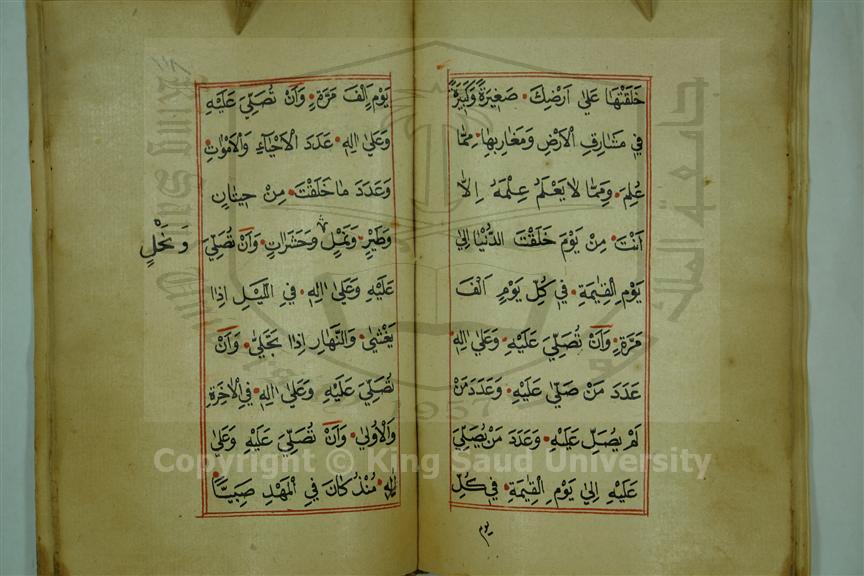 خَلَقْتَهَا عَلٰى اَرْضِكَ صَغِيرَةً وَكَبِيرَةً
فِي مَشَارِقِ الْاَرْضِ وَمَغَارِبِهَا مِمَّا
عُلِمَ وَمِمَّا لَا يَعْلَمُ عِلْمَهُ اِلَّا
اَنْتَ مِنْ يَوْمَ خَلَقْتَ الدُّنْيَا اِلٰى
يَوْمِ الْقِيٰمَةِ فِي كُلِّ يَوْمٍ اَلْفَ
مَرَّةٍ وَاَنْ تُصَلِّيَ عَلَيْهِ وَعَلٰى اٰلِهِ
عَدَدَ مَنْ صَلّٰى عَلَيْهِ وَعَدَدَ مَنْ
لَمْ يُصَلِّ عَلَيْهِ وَعَدَدَ مَنْ يُصَلِّيَ
عَلَيْهِ اِلٰى يَوْمِ الْقِيٰمَةِ فِي كُلِّ
يوم
يَوْمٍ اَلْفَ مَرَّةٍ وَاَنْ تُصَلِّيَ عَلَيْهِ
وَعَلٰى اٰلِهِ عَدَدَ الْاَحْيَآءِ وَالْاَمْوَاتِ
وَعَدَدَ مَا خَلَقْتَ مِنْ حِيتَانٍ
وَطَيْرٍ وَنَمْلٍ وَحَشَرَاتٍ وَاَنْ تُصَلِّيَ
وَنَحْلٍ
عَلَيْهِ وَعَلٰى اٰلِهِ فِي الَّيْلِ اِذَا
يَغْشٰى وَالنَّهَارِ اِذَا تَجَلّٰى وَاَنْ
تُصَلِّيَ عَلَيْهِ وَعَلٰى اٰلِهِ فِي الْاٰخِرَةِ
وَالْاُولٰى وَاَنْ تُصَلِّيَ عَلَيْهِ وَعَلٰى
اٰلِهِ مُنْذُ كَانَ فِي الْمَهْدِ صَبِيًّا
Copyright © King Saud University
جامعة الملك
King Saud
1957